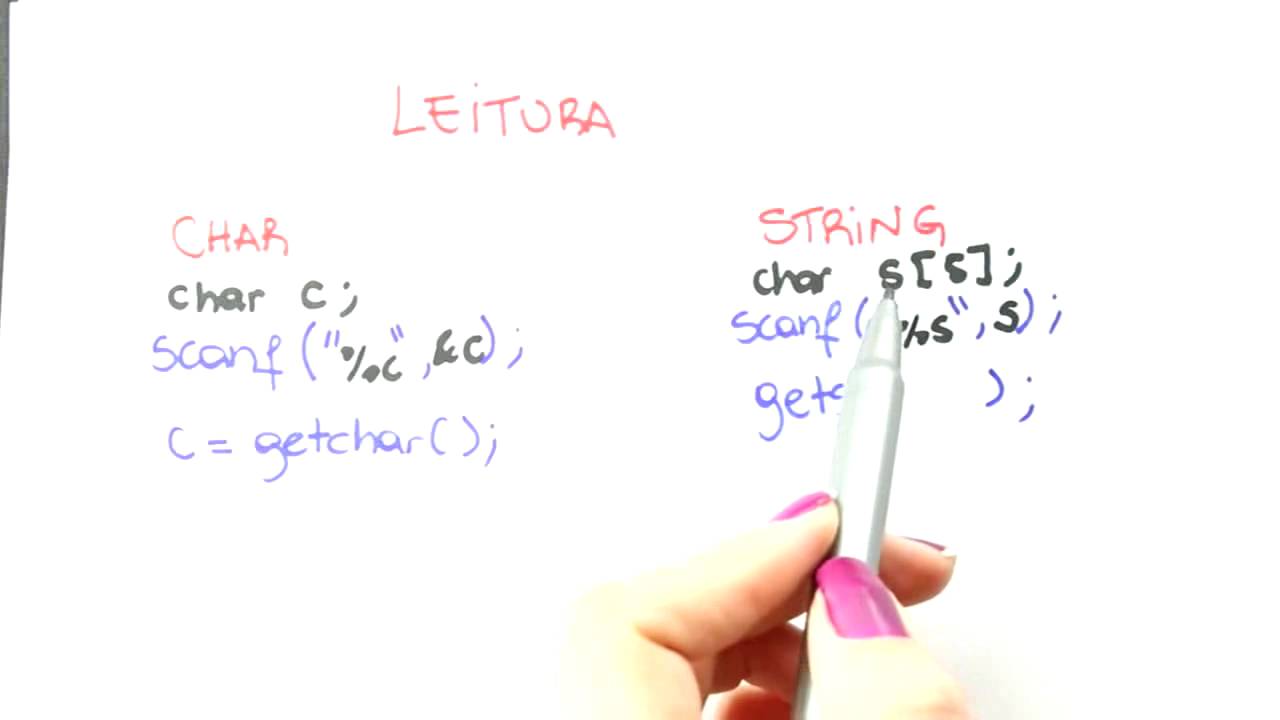 LEITURA
CHAR
char c;
scanf("%c",&c);
c = getchar();
STRING
char s[5];
scanf( %s",s);
gets );